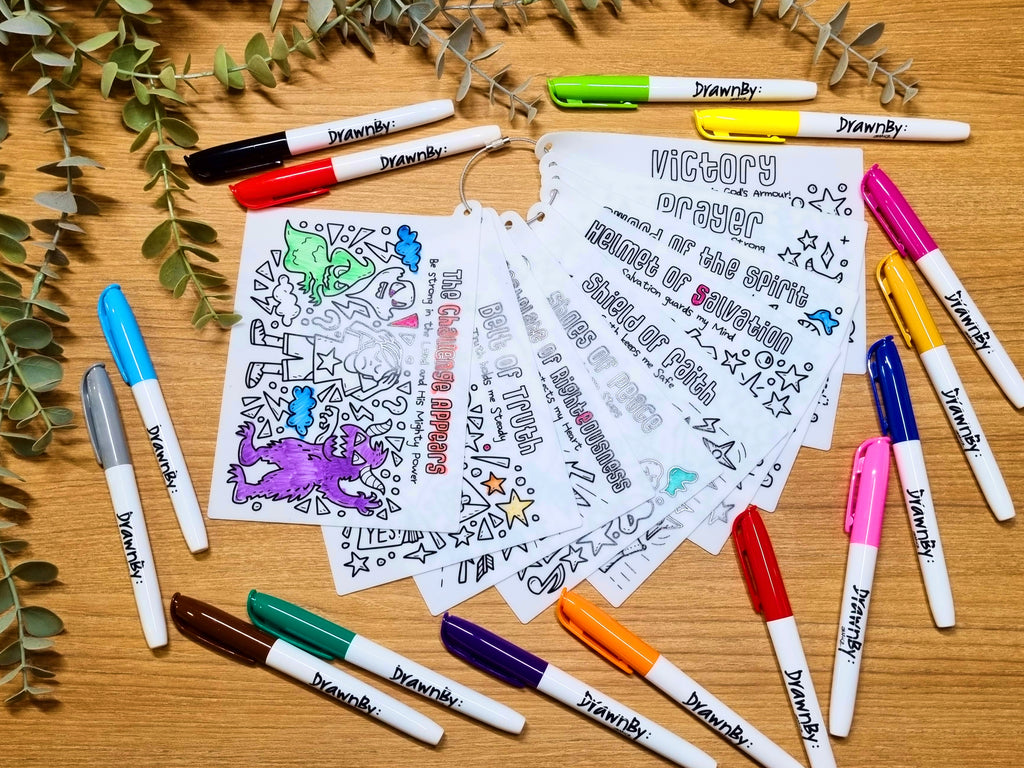 DrawnBy:
DrawnBy:
DrawnBy:
DrawnBy:
Victory
in God's Armour!
Prayer
Strong
of the Spirit
Helmet of Salvation
Salvation guards my Mind
Shield of Faith
Keeps me Safe
Shoes of Peace
of Righteousness
my Heart
Belt of Truth
me Steady
The Challenge Appears
Be strong in the Lord and His Mighty Power
YES!
DrawnBy:
DrawnBy:
DrawnBy:
DrawnBy:
DrawnBy:
DrawnBy:
DrawnBy:
DrawnBy:
DrawnBy:
DrawnBy:
DrawnBy: